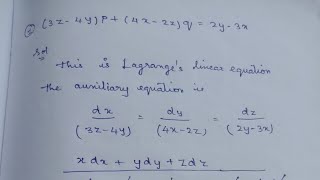 (3z-4y)p+(4x-2z)q = 2y-3x
Sol
This is Lagrange's linear equation
the auxiliary equation is
dx/(3z-4y) = dy/(4x-2z) = dz/(2y-3x)
xdx + ydy + zdz